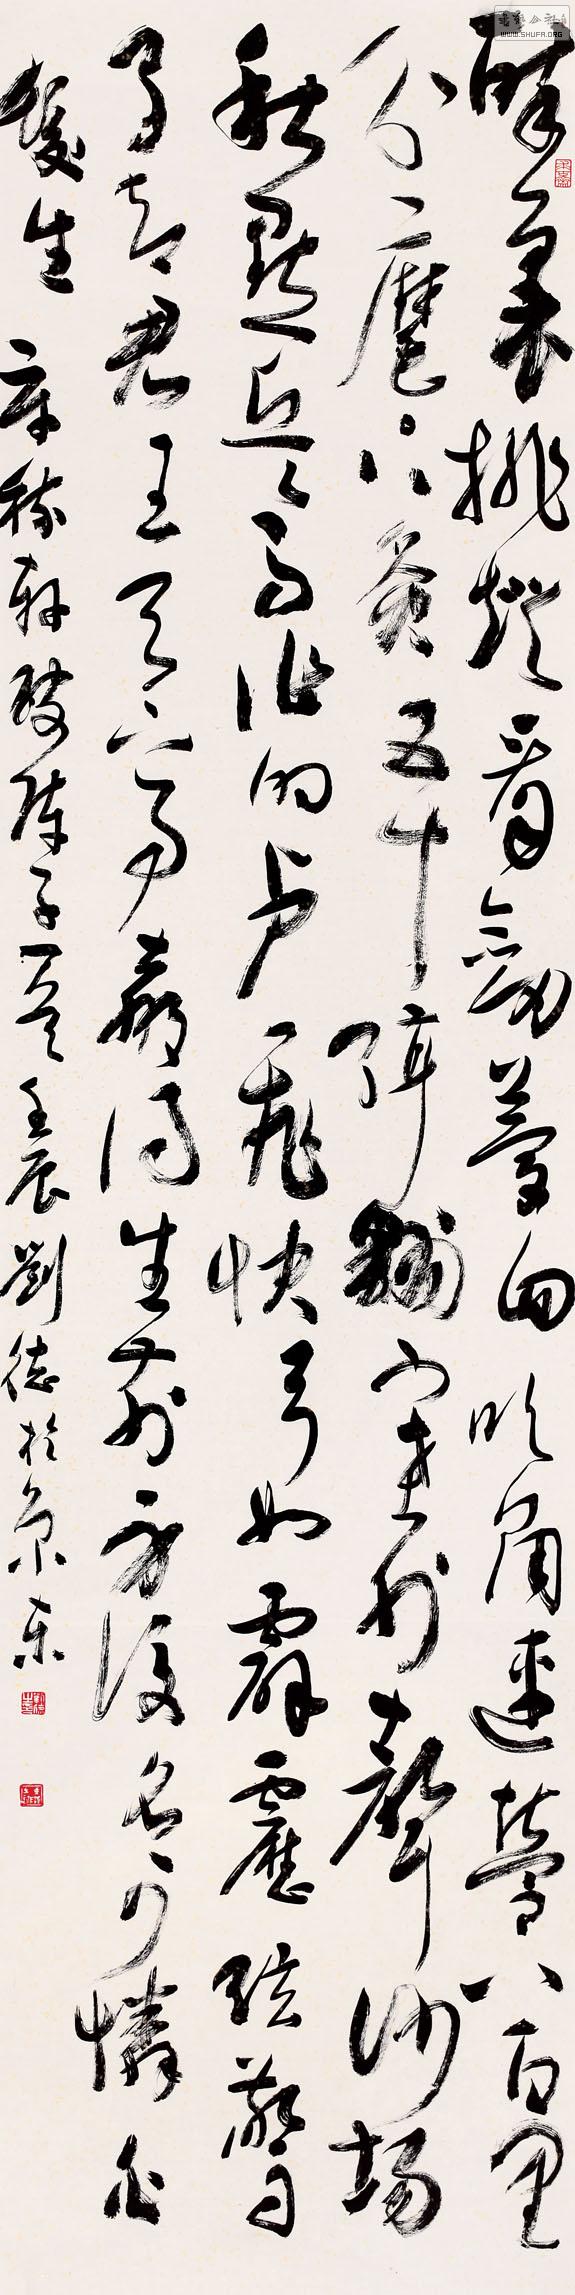 WWW.SHUFA.ORG
醉裏挑燈看劍夢回吹角連營八百里
分麾下炙五十翻塞外聲沙場
秋點兵馬作的盧飛快弓如霹靂弦驚
了却君王天下事贏得生前身後名可憐白
髮生 辛稼軒破陣子一首壬辰劉德於京東